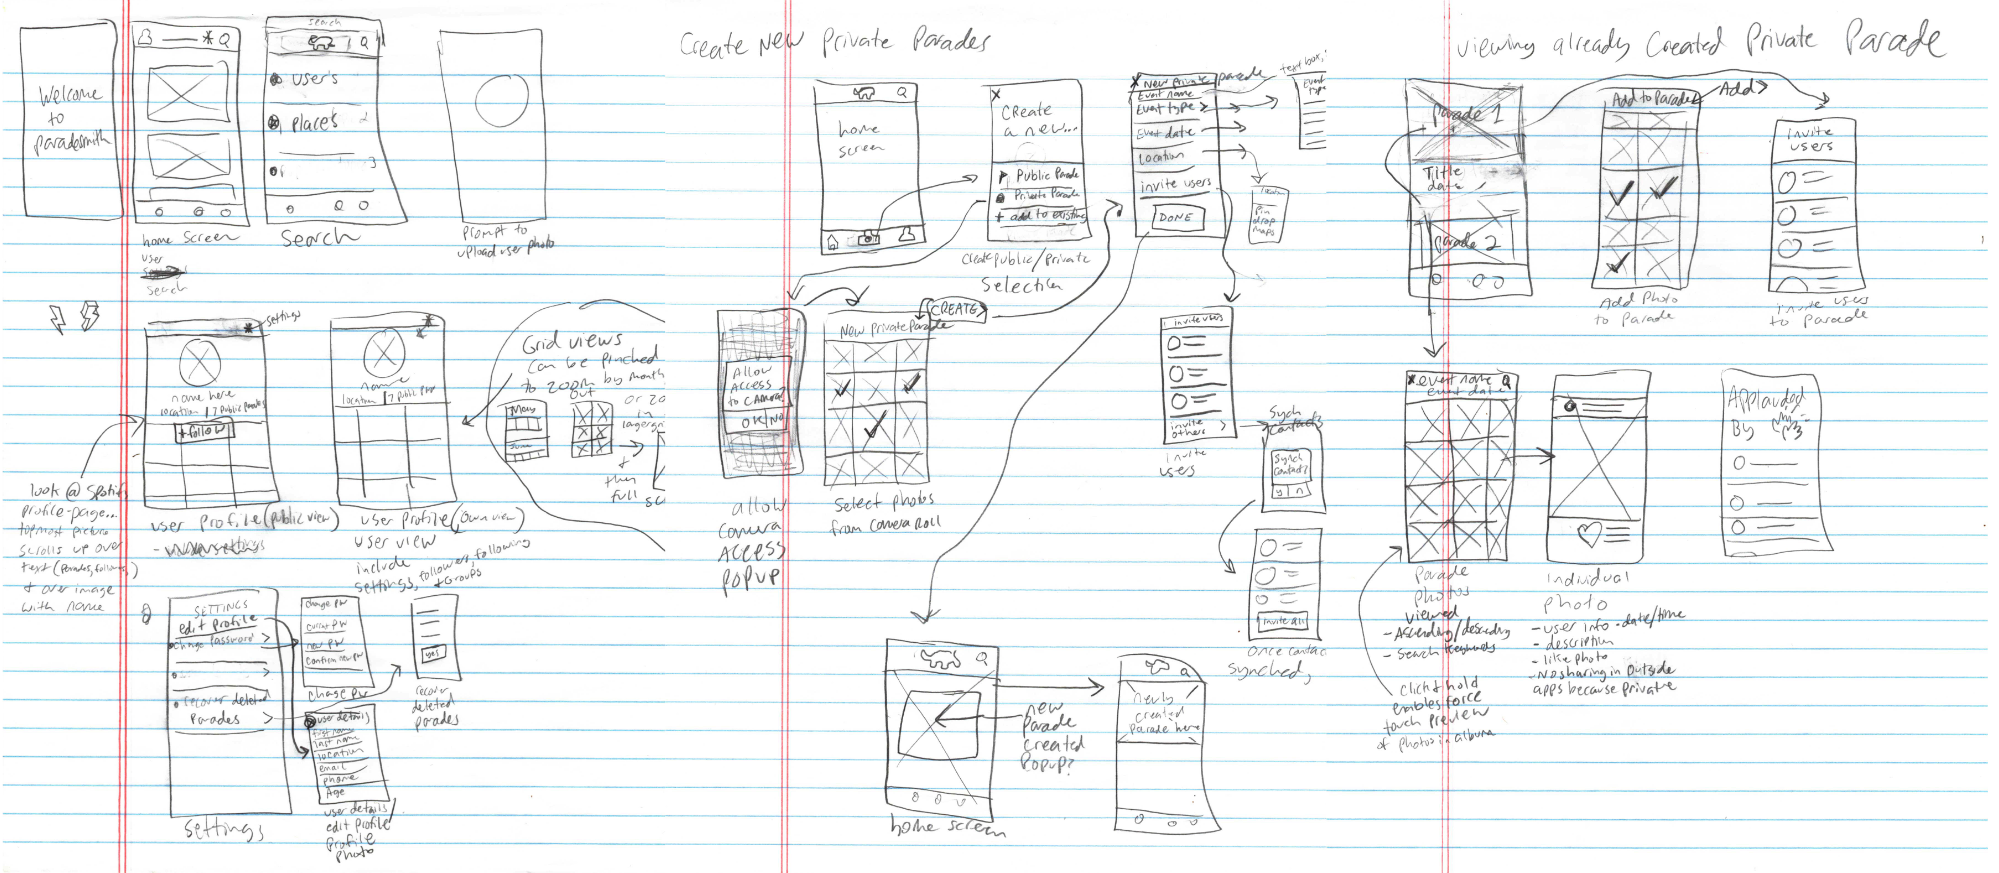 Welcome
to
paradesmith
home screen
user
search
search
user's
places
Search
prompt to
upload user photo
settings
name here
location | 7 public parades
+ follow
user profile (public view)
name
location | 7 public
user profile (own view)
user view
include
settings, followers, following
+ Groups
look @ spotify
profile-page...
topmost picture
scrolls up over
text (parades, follows,)
+ over image
with name
Grid views
can be pinched
to zoom by month
out
or zo
in
May
June
+
then
full
SETTINGS
edit profile
change password
recover deleted
Parades
settings
change pw
current pw
new pw
confirm new pw
change pw
yes
recover
deleted
parades
user details
first name
last name
location
email
phone
Age
user details
edit profile
profile
photo
Create New Private Parades
home
screen
X
Create
a new...
Public Parade
Private Parade
+ add to existing
create public/private
Selection
X New Private parade
Event name
Event type >
Event date
location
invite users
DONE
text box,
Event
type
Pin
drop
maps
ALLOW
ACCESS
to CAMERA?
OK | NO
allow
camera
ACCESS
POPUP
CREATE >
New Private Parade
Select photos
from camera Roll
invite users
invite
others >
invite
users
Synch
Contacts
Synch
contacts?
y | n
invite all
Once contac
synched,
new
parade
created
popup?
home screen
newly
created
Parade here
Viewing already Created Private Parade
Parade 1
Title
date
Parade 2
Add to Parade
Add >
Add Photo
to Parade
invite
users
invite users
to parade
X event name
event date
Parade
photos
viewed
- Ascending/descending
- Search keywords
click & hold
enables force
touch preview
of photos in album
individual
photo
- user info - date/time
- description
- like photo
- No sharing in outside
apps because private
Applauded
By